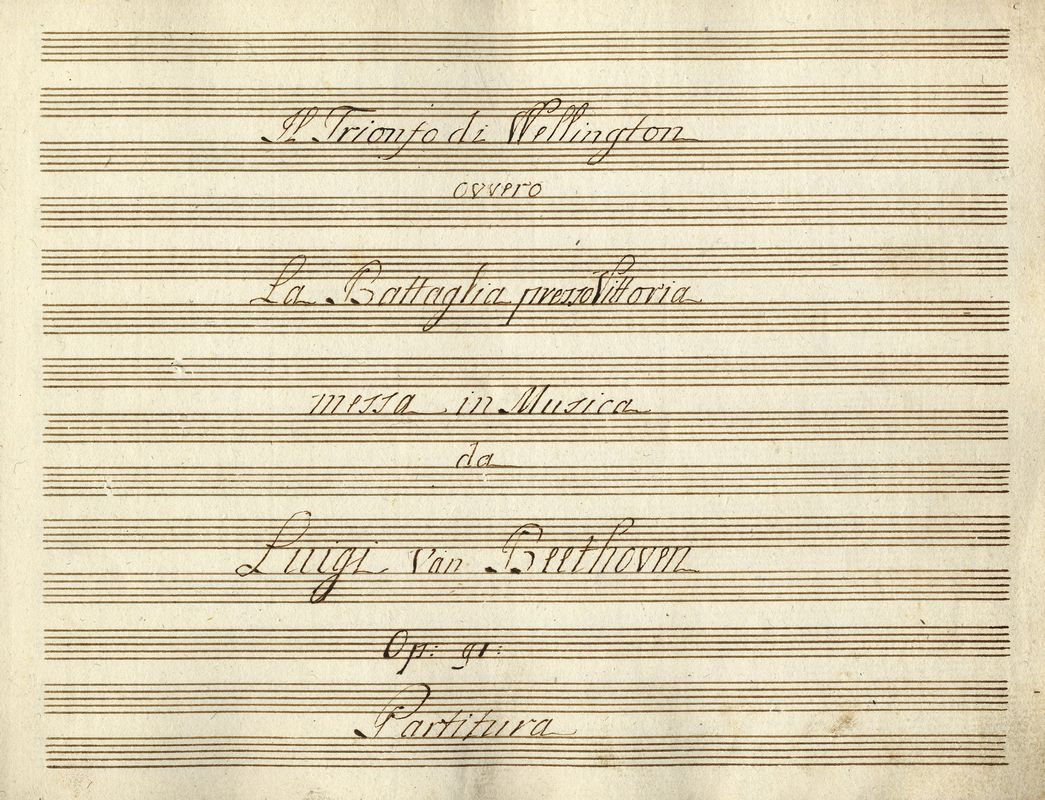 Il Trionfo di Wellington
ovvero
La Battaglia presso Vittoria
messa in Musica
da
Luigi van Beethoven
Op: 91:
Partitura